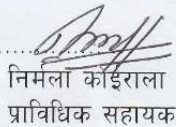 निर्मला कोइराला
प्राविधिक सहायक